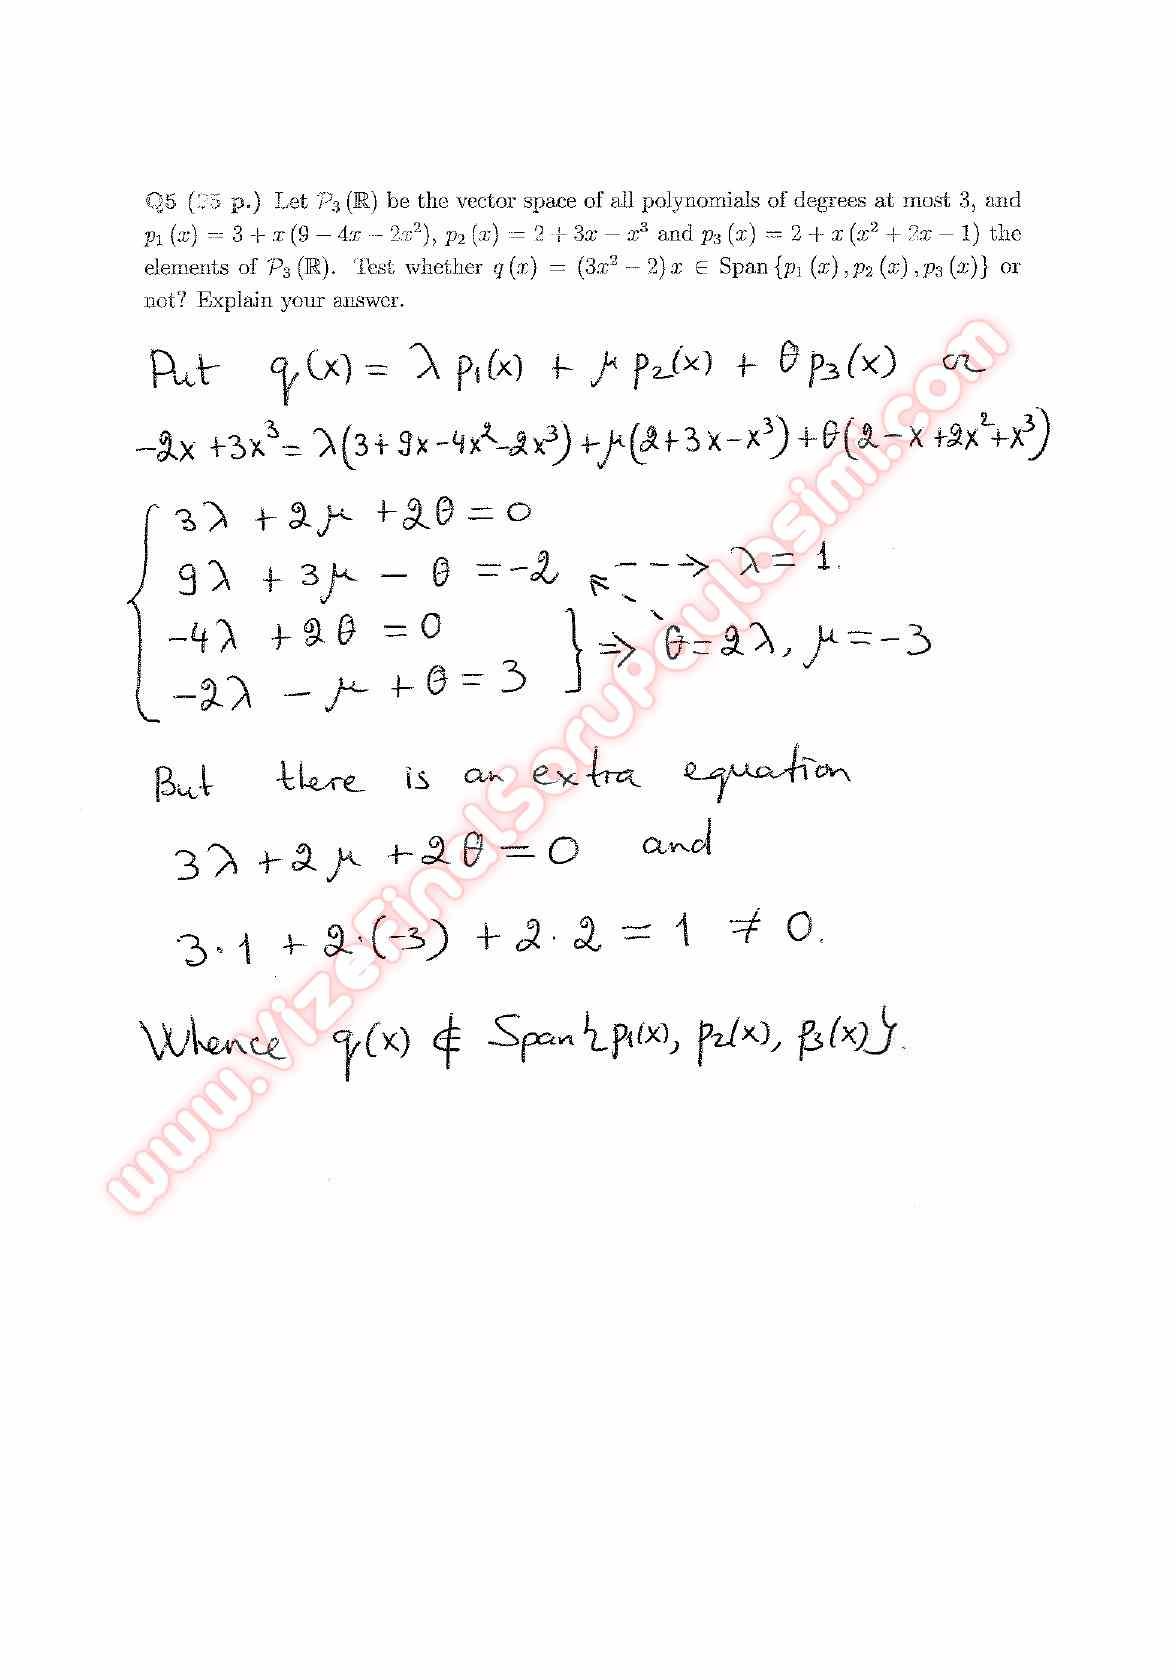 Q5 (25 p.) Let P₃(ℝ) be the vector space of all polynomials of degrees at most 3, and
p₁(x) = 3 + x(9 − 4x − 2x²), p₂(x) = 2 + 3x − x³ and p₃(x) = 2 + x(x² + 2x − 1) the
elements of P₃(ℝ). Test whether q(x) = (3x² − 2)x ∈ Span{p₁(x), p₂(x), p₃(x)} or
not? Explain your answer.
Put q(x) = λ p₁(x) + μ p₂(x) + θ p₃(x) or
-2x + 3x³ = λ(3+9x-4x²-2x³) + μ(2+3x-x³) + θ(2-x+2x²+x³)
3λ + 2μ + 2θ = 0
9λ + 3μ - θ = -2 --> λ = 1.
-4λ + 2θ = 0
-2λ - μ + θ = 3 ⇒ θ = 2λ, μ = -3
But there is an extra equation
3λ + 2μ + 2θ = 0 and
3·1 + 2·(-3) + 2·2 = 1 ≠ 0.
Whence q(x) ∉ Span{p₁(x), p₂(x), p₃(x)}.
www.VizeFinalSoruPaylasimi.com